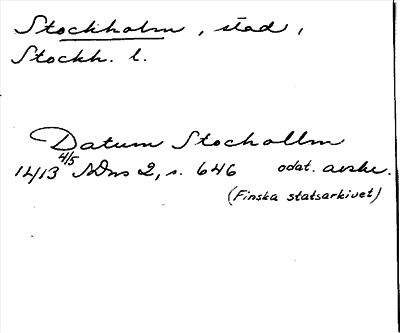 Stockholm, stad,
Stockh. l.
Datum Stochollm
1413 4/5 SDns 2, s. 646 odat. avskr.
(Finska statsarkivet)